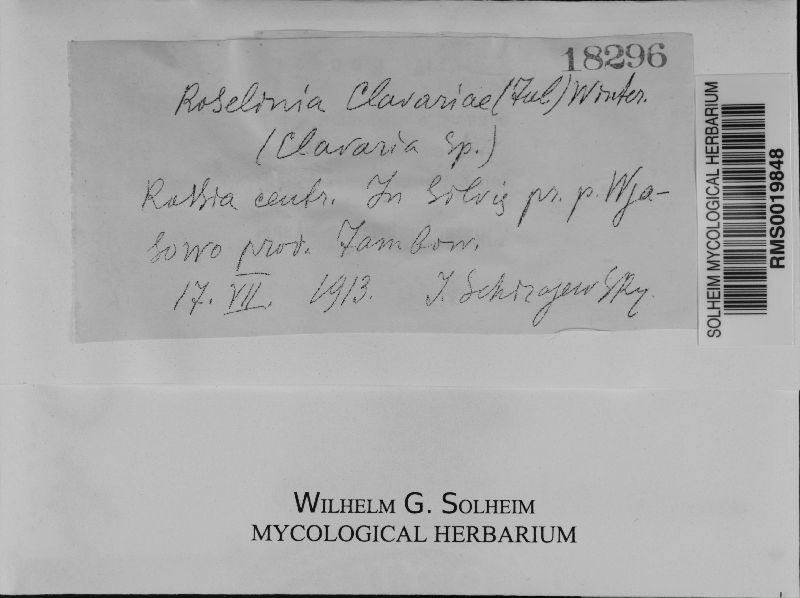 18296
Roselinia Clavariae (Tul.) Winter.
(Clavaria sp.)
Rossia centr. In silvis pr. p. Wja-
sowo prov. Tambow.
17. VII. 1913. J. Schirajewsky.
SOLHEIM MYCOLOGICAL HERBARIUM
RMS0019848
WILHELM G. SOLHEIM
MYCOLOGICAL HERBARIUM